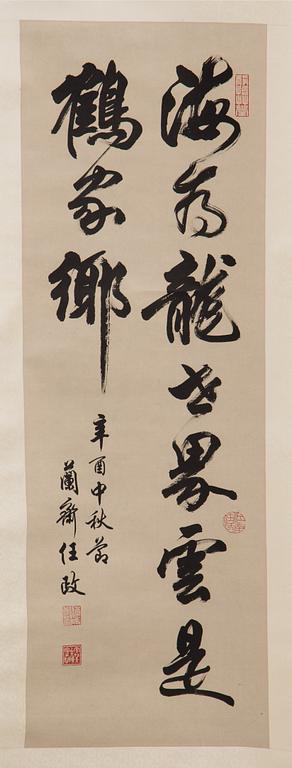 海为龍世界雲是
鶴家鄉
辛酉中秋節
蘭齋任政